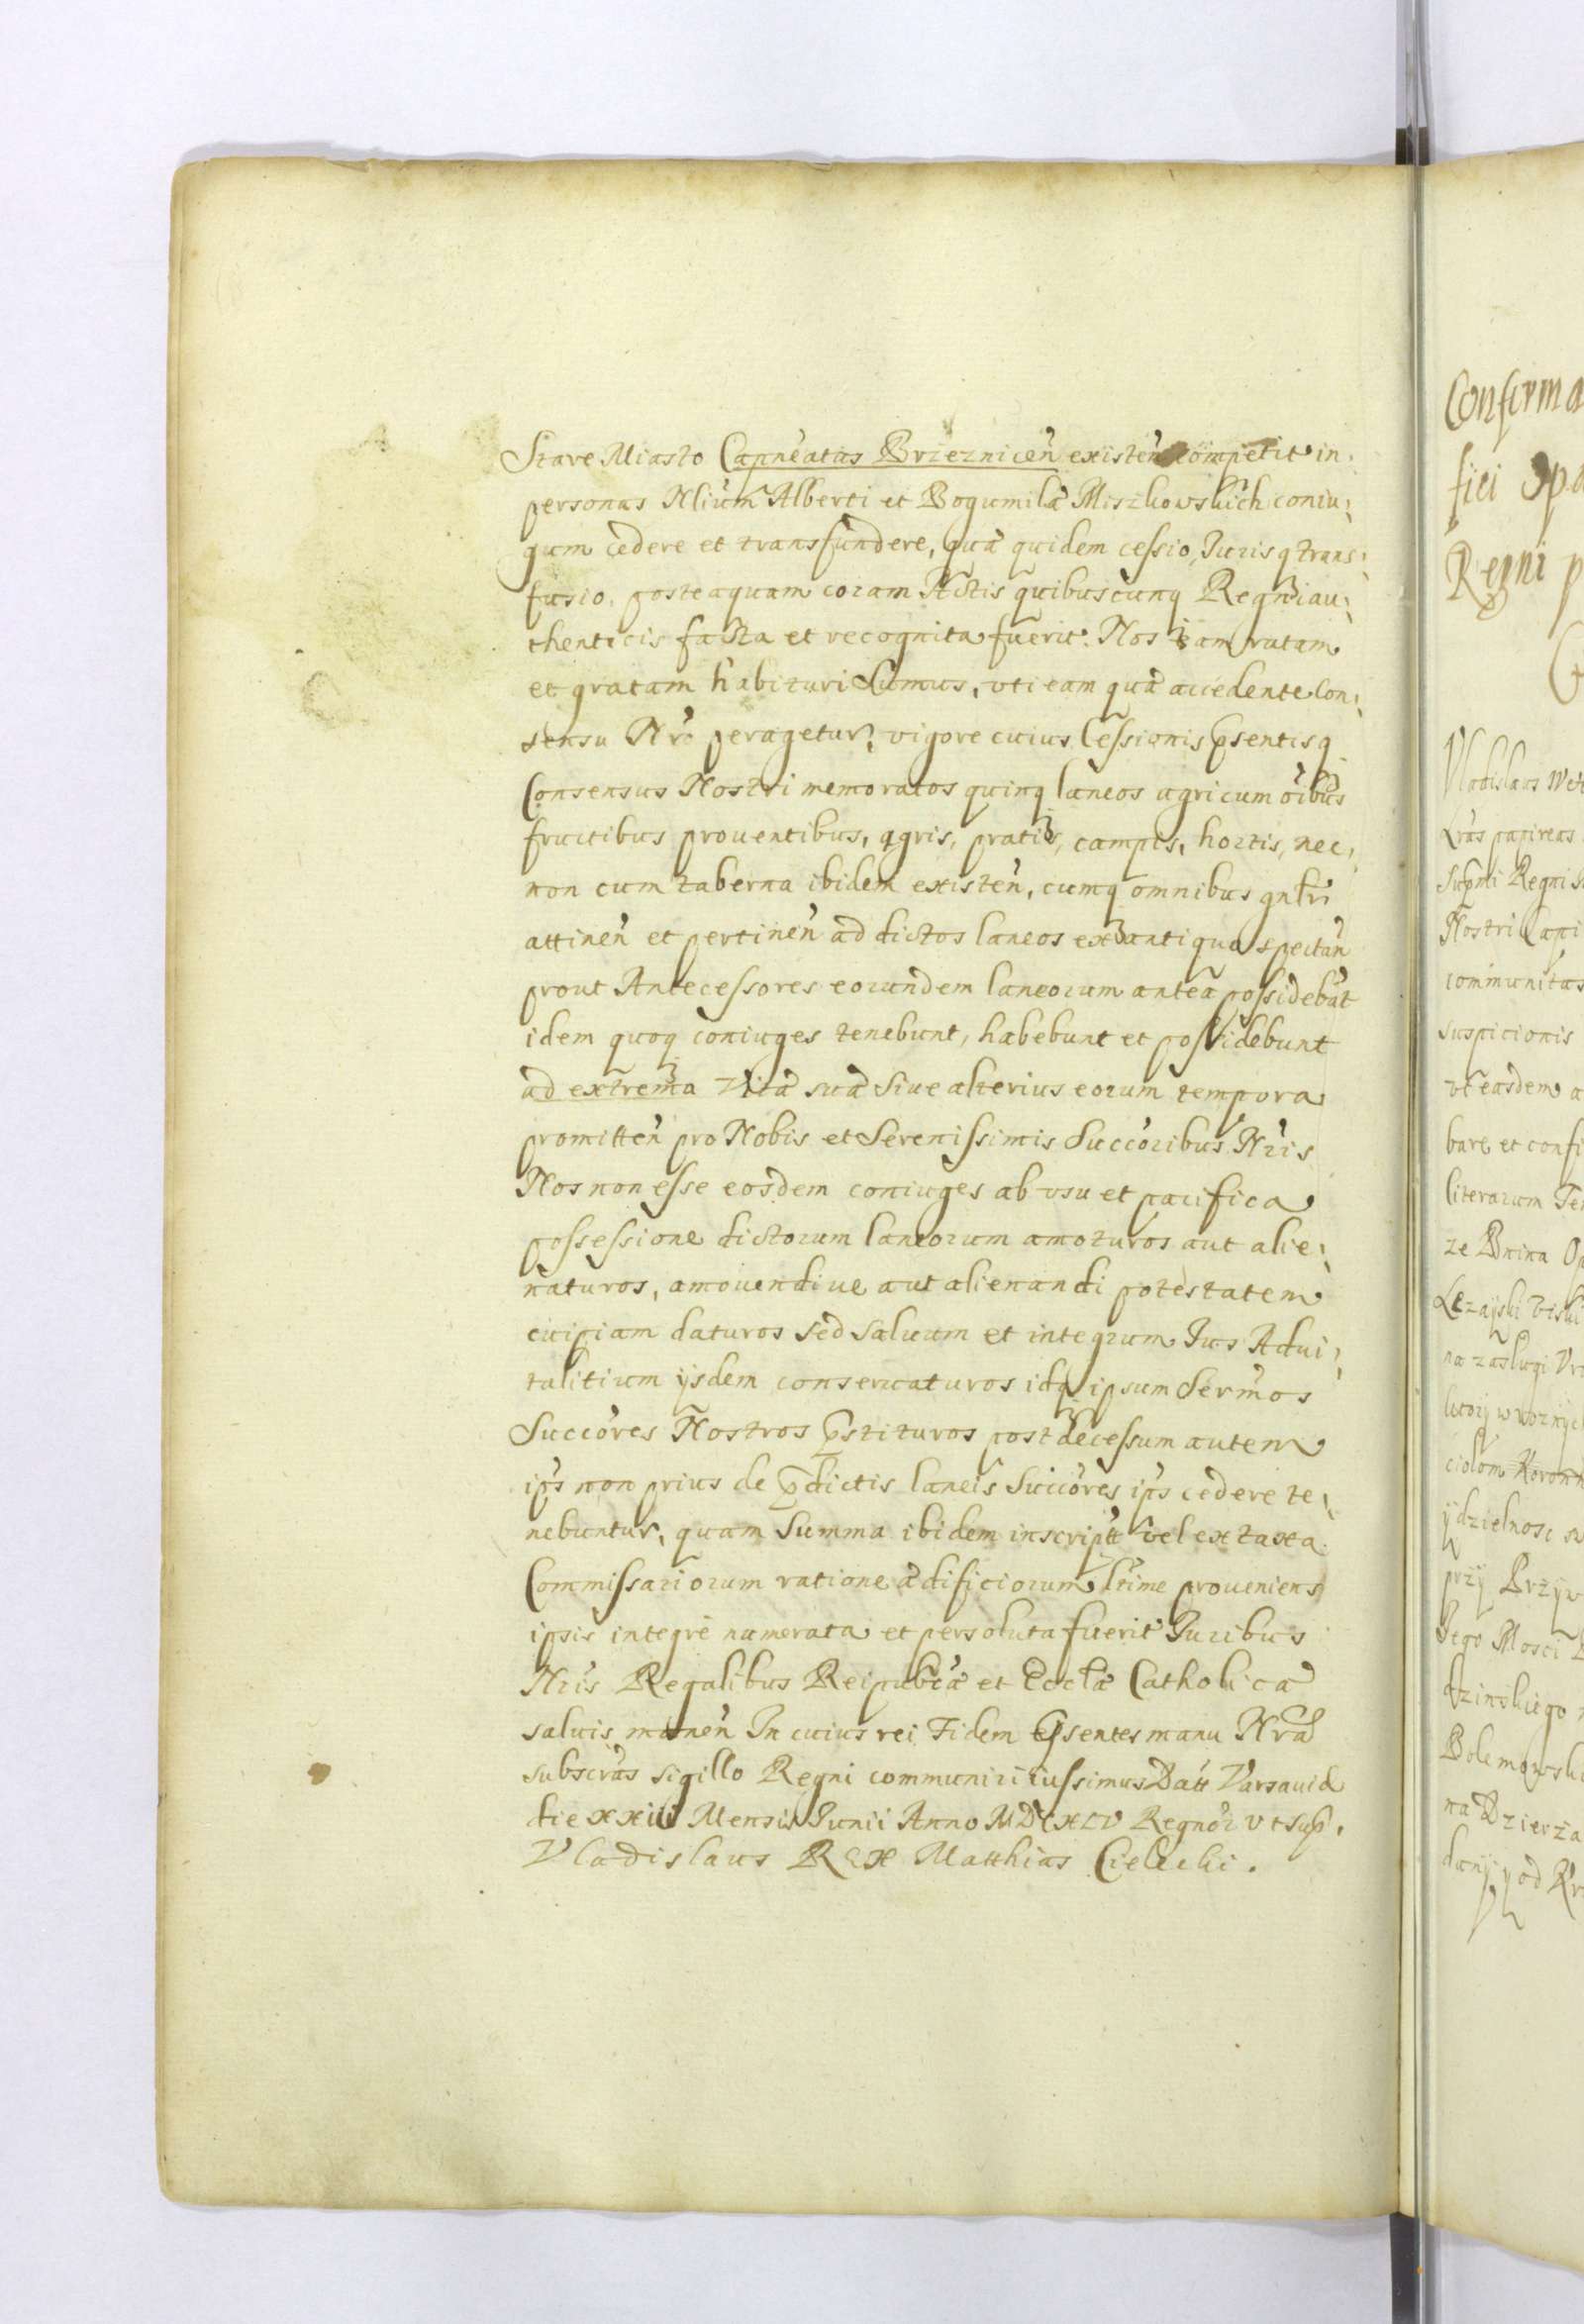 Stare Miasto Capneatus Brzeznicen existen competit in
personas Nlium Alberti et Bogumila Miszkowskich coniu
gum cedere et transfundere, qua quidem cessio, Juris q trans
fusio, posteaquam coram Actis quibuscunq Regni au
thenticis facta et recognita fuerit. Nos eam ratam
et gratam habituri sumus, uti eam qua accedente Con
sensu Nro peragetur, vigore cuius Cessionis psentis q
Consensus Nostri memoratos quinq laneos agri cum oibus
fructibus prouentibus, agris, pratis, campis, hortis, nec
non cum taberna ibidem existen, cumq omnibus gnlr
attinen et pertinen ad dictos laneos ex antiquo spectan
prout Antecessores eorundem laneorum antea possidebat
idem quoq coniuges tenebunt, habebunt et possidebunt
ad extrema Vita sua siue alterius eorum tempora
promitten pro Nobis et Serenissimis Succoribus Nris
Nos non esse eosdem coniuges ab usu et pacifica
possessione dictorum laneorum amoturos aut alie
naturos, amouendi ue aut alienandi potestatem
cuipiam daturos sed saluum et integrum Jus Adui
talitium ijsdem conseruaturos idq ipsum Sermos
Succores Nostros pstituros post decessum autem
ips non prius de pdictis laneis Succores ips cedere te
nebuntur, quam Summa ibidem inscript vel ex taxa
Commissariorum ratione ædificiorum ltime proueniens
ipsis integre numerata et persoluta fuerit Juribus
Nris Regalibus Reipubca et Eccla Catholica
saluis manen In cuius rei Fidem psentes manu Nra
subscras sigillo Regni communiri iussimus Datt Varsauia
die xxiii Mensis Junii Anno MDCXLV Regnor ut sup.
Vladislaus Rex Matthias Cielecki.
Confirma
fici Opa
Regni p
Vladislaus
Lras papireas
Supmi Regni
Nostri Capi
communitas
suspicionis
ut easdem a
bare et confi
literarum Te
ze Bnina Op
Lezajski
na zaslugi
ciolom Koronn
y dzielnosc
przy Brzyw
Jego Mosci
dzinskiego
Bolemowsk
na Dzierza